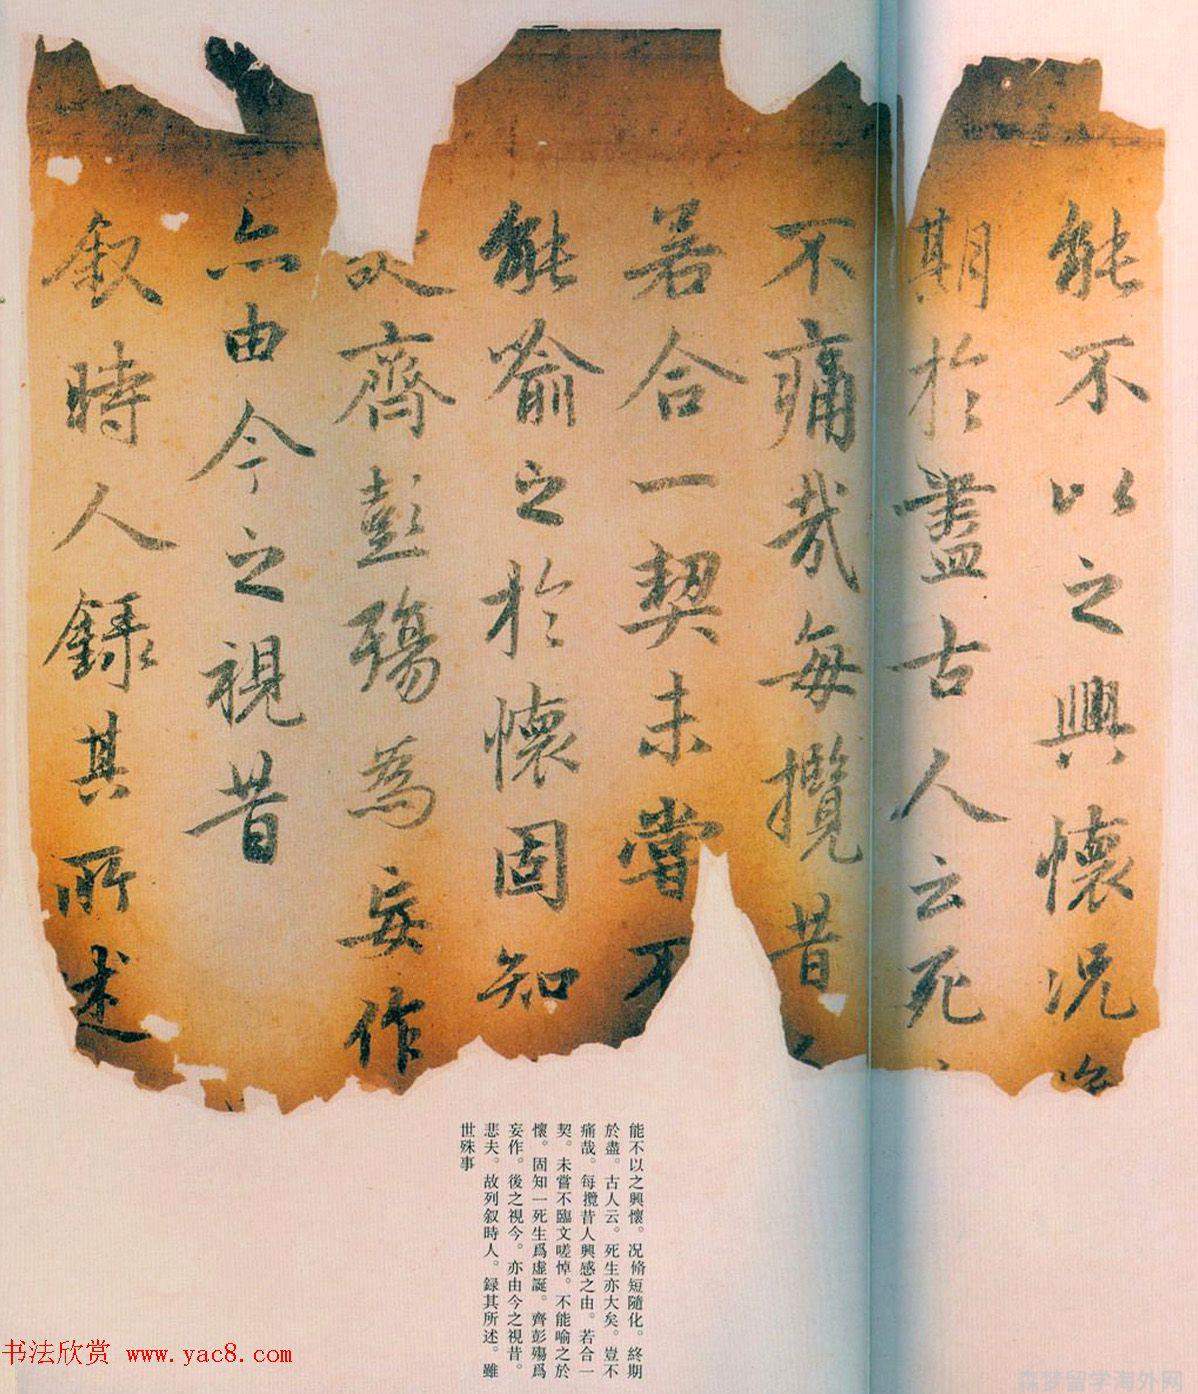 能不以之興懷况
期於盡古人云死
不痛哉每攬昔
若合一契未嘗不
能喻之於懷固知
齊彭殤為妄作
亦由今之視昔
叙時人錄其所述
能不以之興懷。况脩短隨化。終期
於盡。古人云。死生亦大矣。豈不
痛哉。每攬昔人興感之由。若合一
契。未嘗不臨文嗟悼。不能喻之於
懷。固知一死生爲虛誕。齊彭殤爲
妄作。後之視今。亦由今之視昔。
悲夫。故列叙時人。録其所述。雖
世殊事
书法欣赏 www.yac8.com